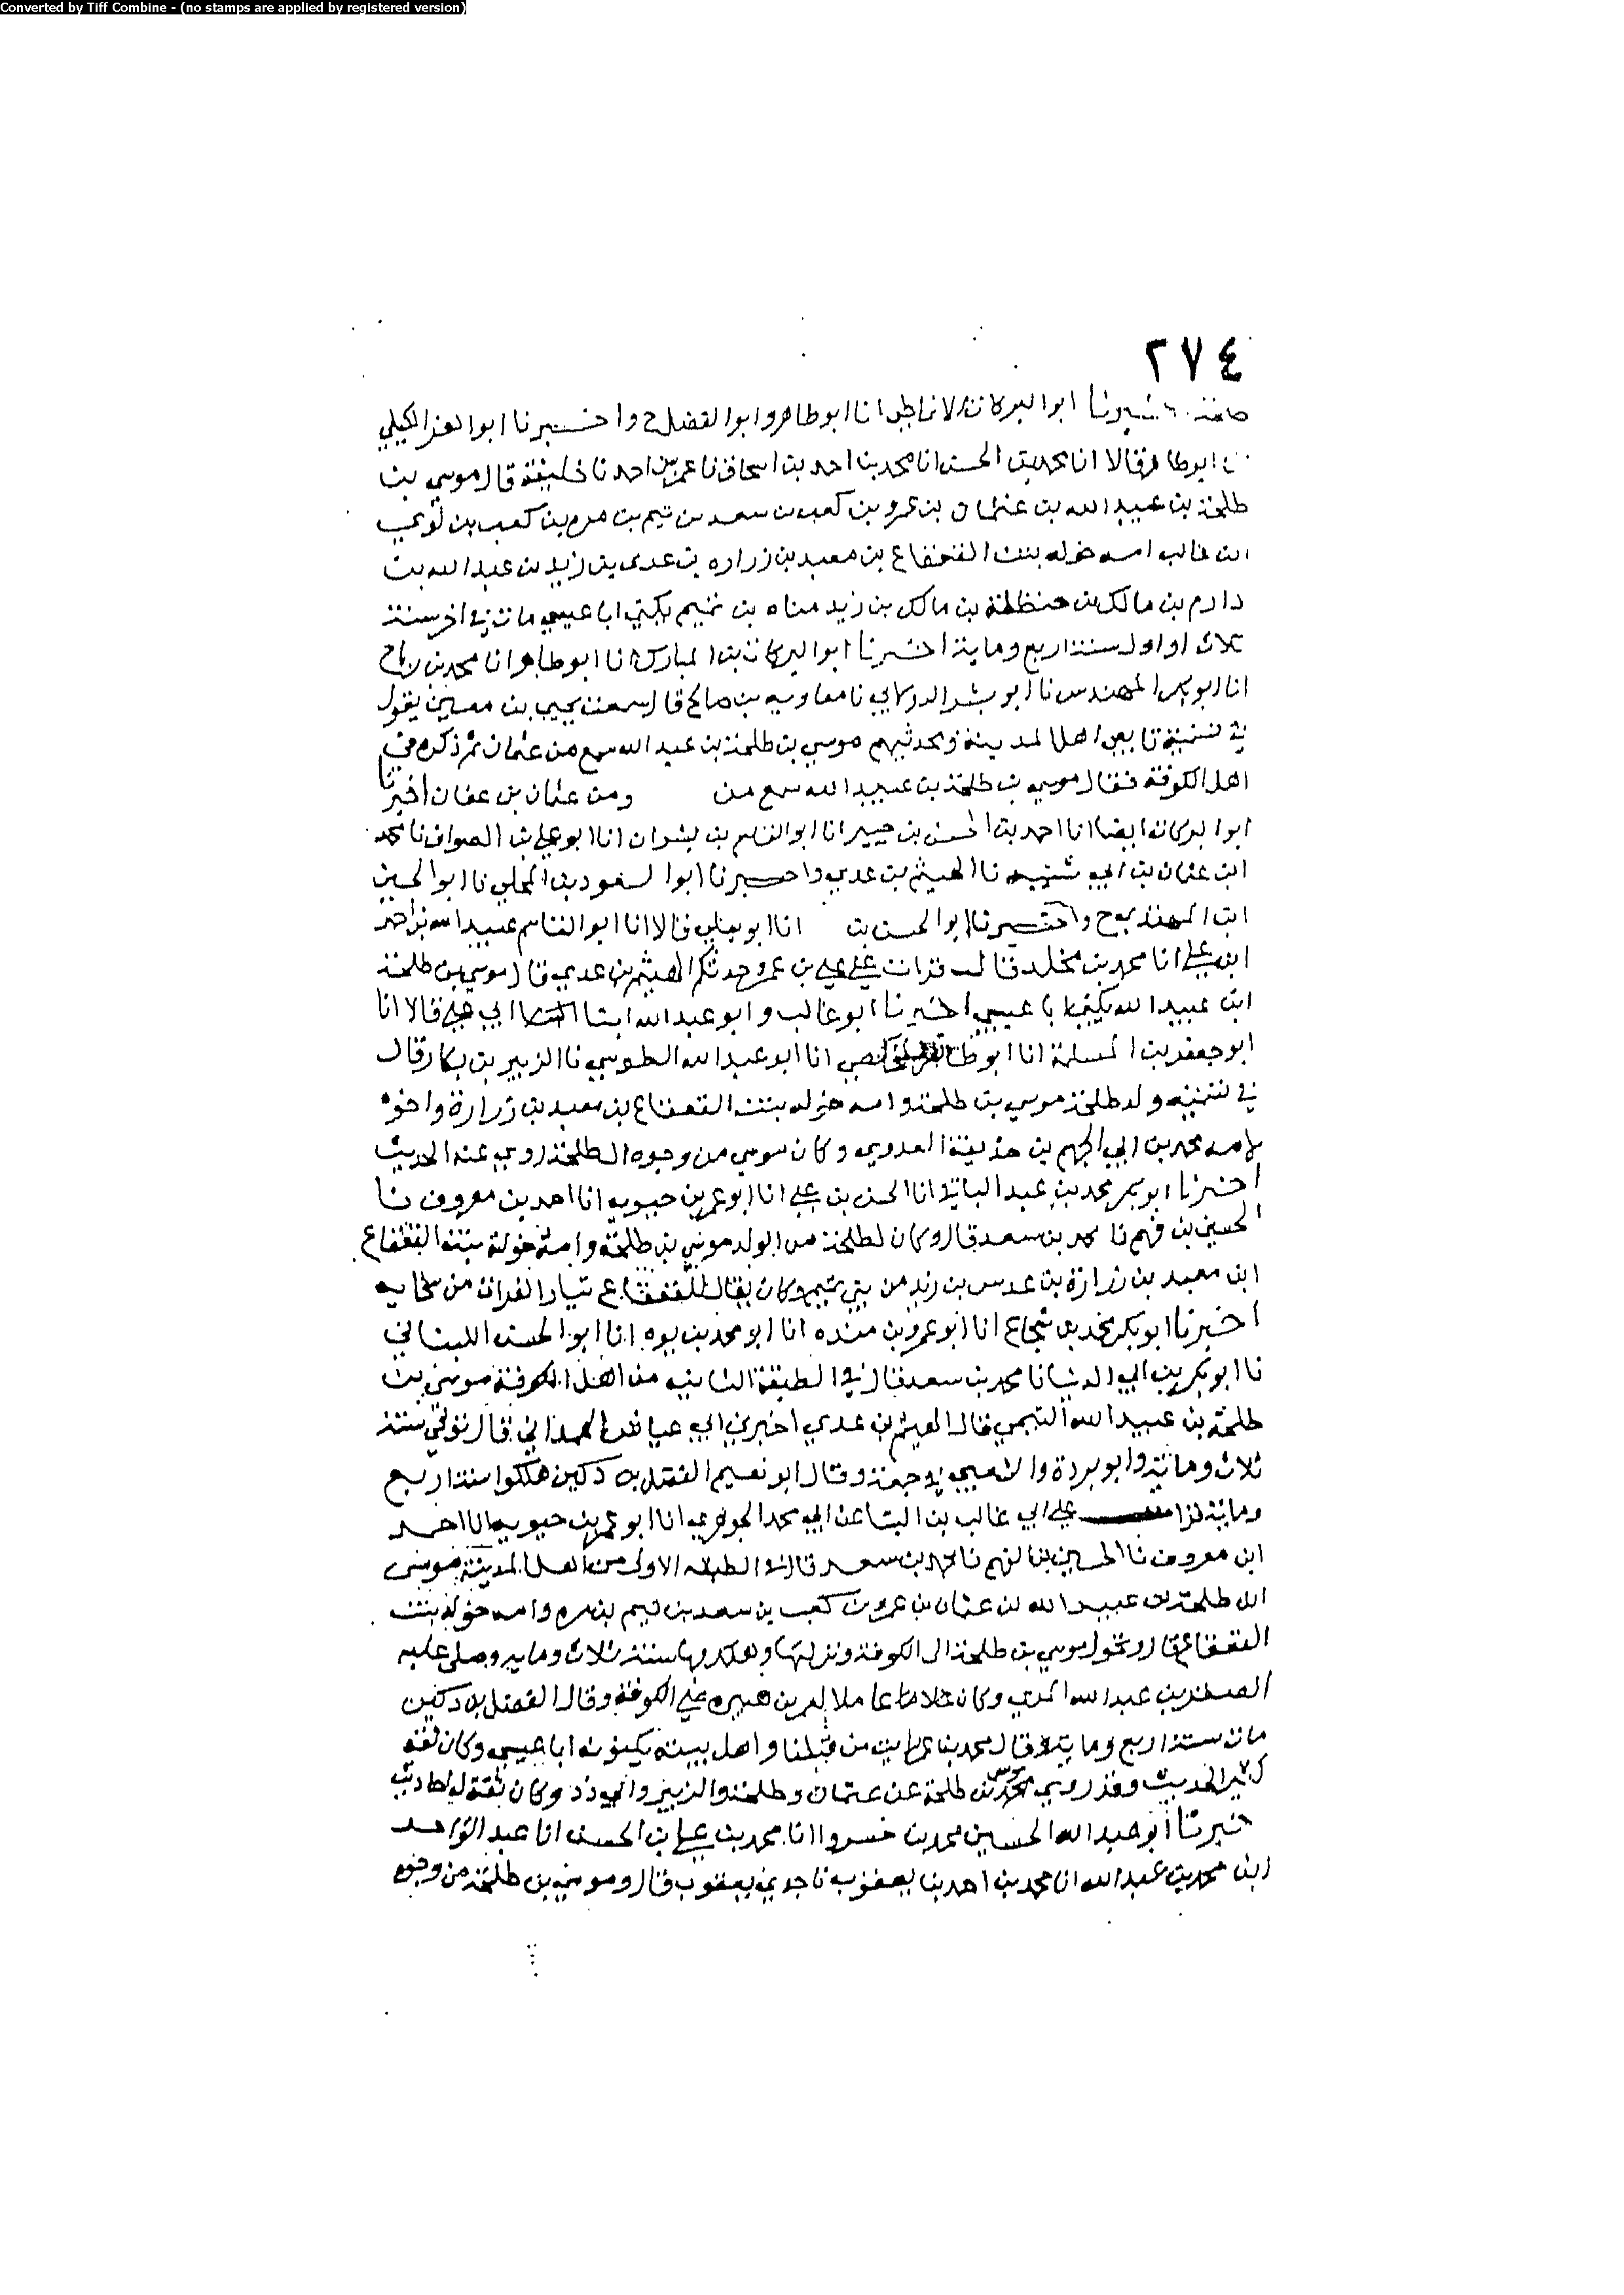 Converted by Tiff Combine - (no stamps are applied by registered version)
٢٧٤
اخبرنا ابو البركات الانماطي انا ابو طاهر وابو الفضل ح واخبرنا ابو العز الكيلي
ابو طاهر قالا انا محمد بن الحسن انا محمد بن احمد بن اسحاق نا عمر بن احمد نا خليفة قال موسي بن
طلحة بن عبيد الله بن عثمان بن عمرو بن كعب بن سعد بن تيم بن مره بن كعب بن لوي
ابن غالب امه خوله بنت القعقاع بن معبد بن زراره بن عدى بن زيد بن عبد الله بن
دارم بن مالك بن حنظلة بن مالك بن زيد مناه بن تميم يكني ابا عيسي مات في اخر سنة
ثلاث او اول سنة اربع وماية اخبرنا ابو البركات بن المبارك انا ابو طاهر انا محمد بن رباح
انا ابو بكر المهندس نا ابو بشر الدولابي نا معاويه بن صالح قال سمعت يحيى بن معين يقول
في تسمية تابعي اهل المدينة ومحدثيهم موسي بن طلحة بن عبيد الله سمع من عثمان ثم ذكره في
اهل الكوفة فقال موسي بن طلحة بن عبيد الله سمع من ومن عثمان بن عفان اخبرنا
ابو البركات ايضا انا احمد بن الحسن بن خيرون انا ابو القاسم بن بشران انا ابو علي بن الصواف نا محمد
ابن عثمان بن ابي شيبه نا الهيثم بن عدي واخبرنا ابو السعود بن المجلي نا ابو الحسين
ابن المهتدي ح واخبرنا ابو الحسين بن انا ابو يعلي قالا انا ابو القاسم عبيد الله بن احمد
ابن علي انا محمد بن مخلد قال قرات علي علي بن عمرو حدثكم الهيثم بن عدي قال موسي بن طلحة
ابن عبيد الله يكني ابا عيسي اخبرنا ابو غالب و ابو عبد الله ابنا ابي علي قالا انا
ابو جعفر بن المسلمة انا ابو طاهر المخلص انا ابو عبد الله الطوسي نا الزبير بن بكار قال
في تسمية ولد طلحة موسي بن طلحة وامه خوله بنت القعقاع بن معبد بن زرارة واخوه
لامه محمد بن ابي الجهم بن حذيفة العدوي وكان موسي من وجوه ال طلحة روي عنه الحديث
اخبرنا ابو بكر محمد بن عبد الباقي انا الحسن بن علي انا ابو عمر بن حيويه انا احمد بن معروف نا
الحسين بن فهم نا محمد بن سعد قال وكان لطلحة من الولد موسي بن طلحة وامه خولة بنت القعقاع
ابن معبد بن زرارة بن عدس بن زيد من بني تميم وكان يقال للقعقاع تيار الفرات من سخايه
اخبرنا ابو بكر محمد بن شجاع انا ابو عمرو بن منده انا ابو محمد بن يوه انا ابو الحسن اللبناني
نا ابو بكر بن ابي الدنيا نا محمد بن سعد قال في الطبقة الثانيه من اهل الكوفة موسي بن
طلحة بن عبيد الله التيمي قال الهيثم بن عدي اخبرني ابي عياش الهمذاني قال توفي سنة
ثلاث وماية وابو بردة والشعبي في جمعة وقال ابو نعيم الفضل بن دكين هلكوا سنة اربع
وماية قرات علي ابي غالب بن البنا عن ابي محمد الجوهري انا ابو عمر بن حيويه انا احمد
ابن معروف نا الحسين بن الفهم نا محمد بن سعد قال في الطبقه الاولى من اهل المدينة موسى
ابن طلحة بن عبيد الله بن عثمان بن عمرو بن كعب بن سعد بن تيم بن مره وامه خوله بنت
القعقاع قال وتحول موسي بن طلحة الى الكوفة ونزلها وهلك بها سنة ثلاث وماية وصلى عليه
الصقر بن عبد الله المزني وكان عاملا لعمر بن هبيره علي الكوفة وقال الفضل بن دكين
مات سنة اربع وماية قال محمد بن عمر رايت من قبلنا واهل بيته يكنونه ابا عيسي وكان ثقة
كثير الحديث وقد روي موسى بن طلحة عن عثمان وطلحة والزبير وابي ذر وكان ثقة له احاديث
اخبرنا ابو عبد الله الحسين محمد بن خسروا انا محمد بن علي بن الحسن انا عبد الواحد
ابن محمد بن عبد الله انا محمد بن احمد بن يعقوب نا جدي يعقوب قال وموسي بن طلحة من وجوه